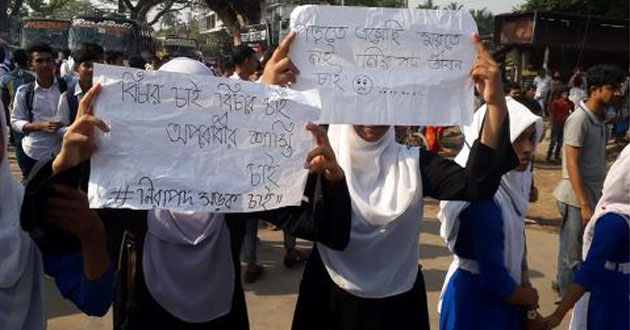 বিচার চাই বিচার চাই
অপরাধীর শাস্তি
চাই
# নিরাপদ সড়ক চাই
পড়তে এসেছি মরতে
নই, নিরাপদ জীবন
চাই